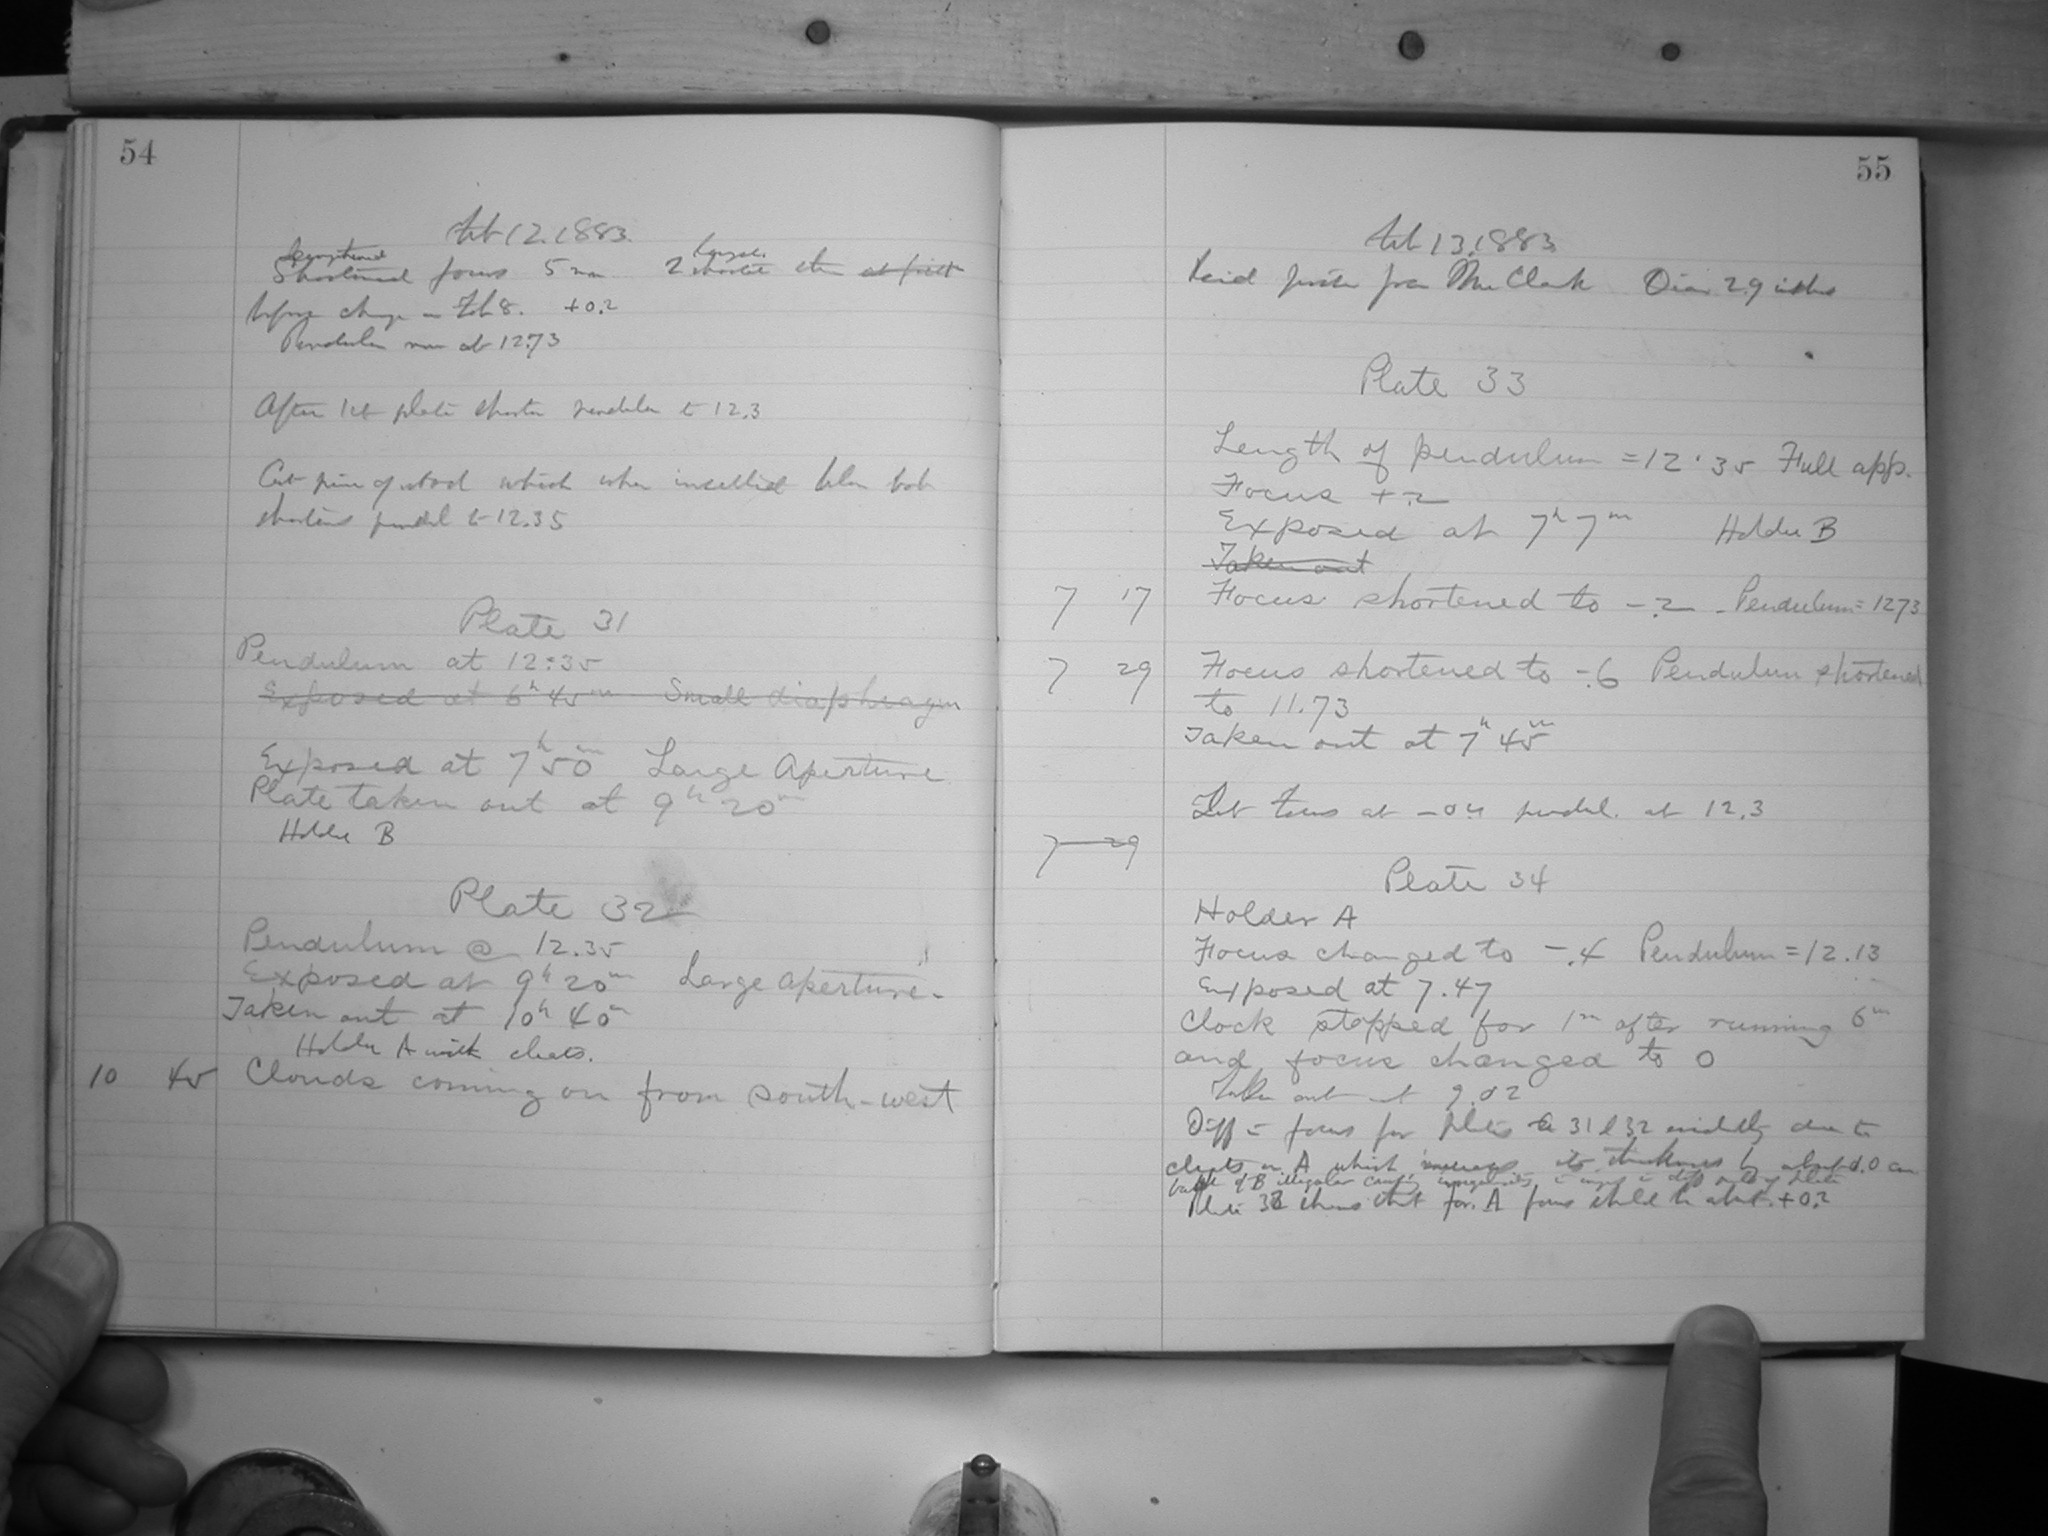 54
Feb 12. 1883.
lengthened
Shortened focus 5 mm 2 shorter than at first
before change on Feb 8. +0.2
Pendulum now at 12.73
After 1st plate shorten pendulum to 12.3
Cut pin of wood which when inserted below bob
shortens pendul to 12.35
Plate 31
Pendulum at 12.35
Exposed at 6h 45m Small diaphragm
Exposed at 7h 50m Large Aperture
Plate taken out at 9h 20m
Holder B
Plate 32
Pendulum @ 12.35
Exposed at 9h 20m Large Aperture.
Taken out at 10h 40m
Holder A with cleats.
10 45 Clouds coming on from south-west
55
Feb 13. 1883
from Mr Clark Diam 2.9 inches
Plate 33
Length of pendulum = 12.35 Full app.
Focus +.2
Exposed at 7h 7m Holder B
Taken out
7 17 Focus shortened to -.2 Pendulum = 1273
7 29 Focus shortened to -.6 Pendulum shortened
to 11.73
Taken out at 7h 45m
Set focus at -0.4 pendul. at 12.3
7 29
Plate 34
Holder A
Focus changed to -.4 Pendulum = 12.13
Exposed at 7.47
Clock stopped for 1m after running 6m
and focus changed to 0
Taken out at 9.02
Diff in focus for plates 31 & 32 evidently due to
cleats on A which increases its thickness by about .0 cm
of B irregular
Plate 32 shows that for A focus should be about +0.2